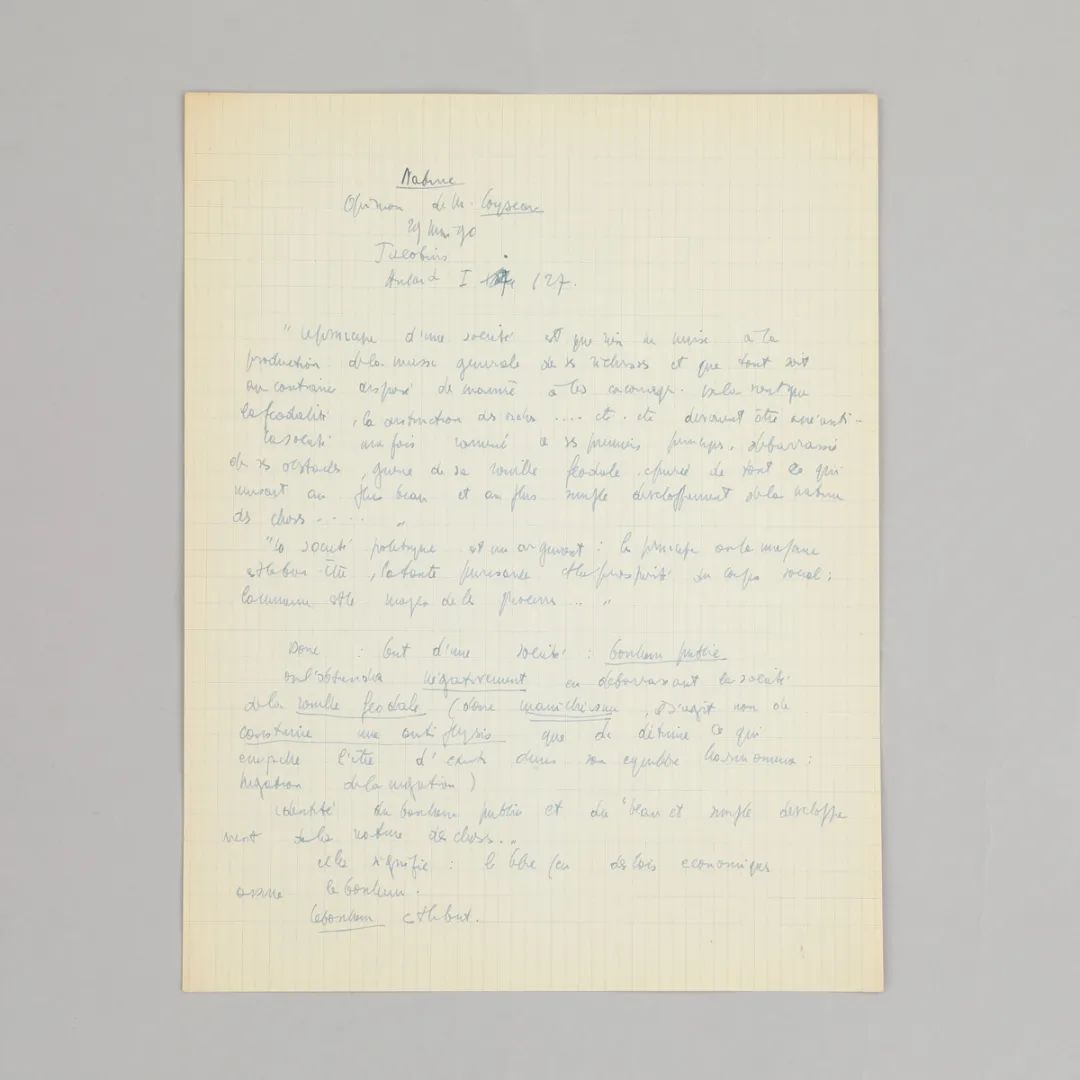 Nature
Opinion de M.
29 Mars 90
Jacobins
Aulard I 127.
" Le principe d'une société est que rien ne nuise à la
production de la masse générale de ses richesses et que tout soit
au contraire disposé de manière à les encourager.
la féodalité, la destruction des .... etc. etc devraient être anéanti-
La société une fois ramené à ses premiers principes, débarrassée
de ses obstacles, guérie de sa rouille féodale, épurée de tout ce qui
nuisait au plus beau et au plus simple developpement de la nature
des choses ..... "
"La société politique est un argument : le principe
, la toute puissance et la prosperité du corps social ;
.. "
Donc : but d'une société : bonheur public
on l'obtiendra négativement en débarrassant la société
de la rouille féodale (donc manichéisme, il s'agit non de
construire une anti physis que de détruire ce qui
empêche l'être d'exister dans son equilibre harmonieux :
négation de la négation)
identité du bonheur public et du "beau et simple developpe
ment de la nature des choses.."
cela signifie : le libre jeu des lois economiques
assure le bonheur.
le bonheur est le but.